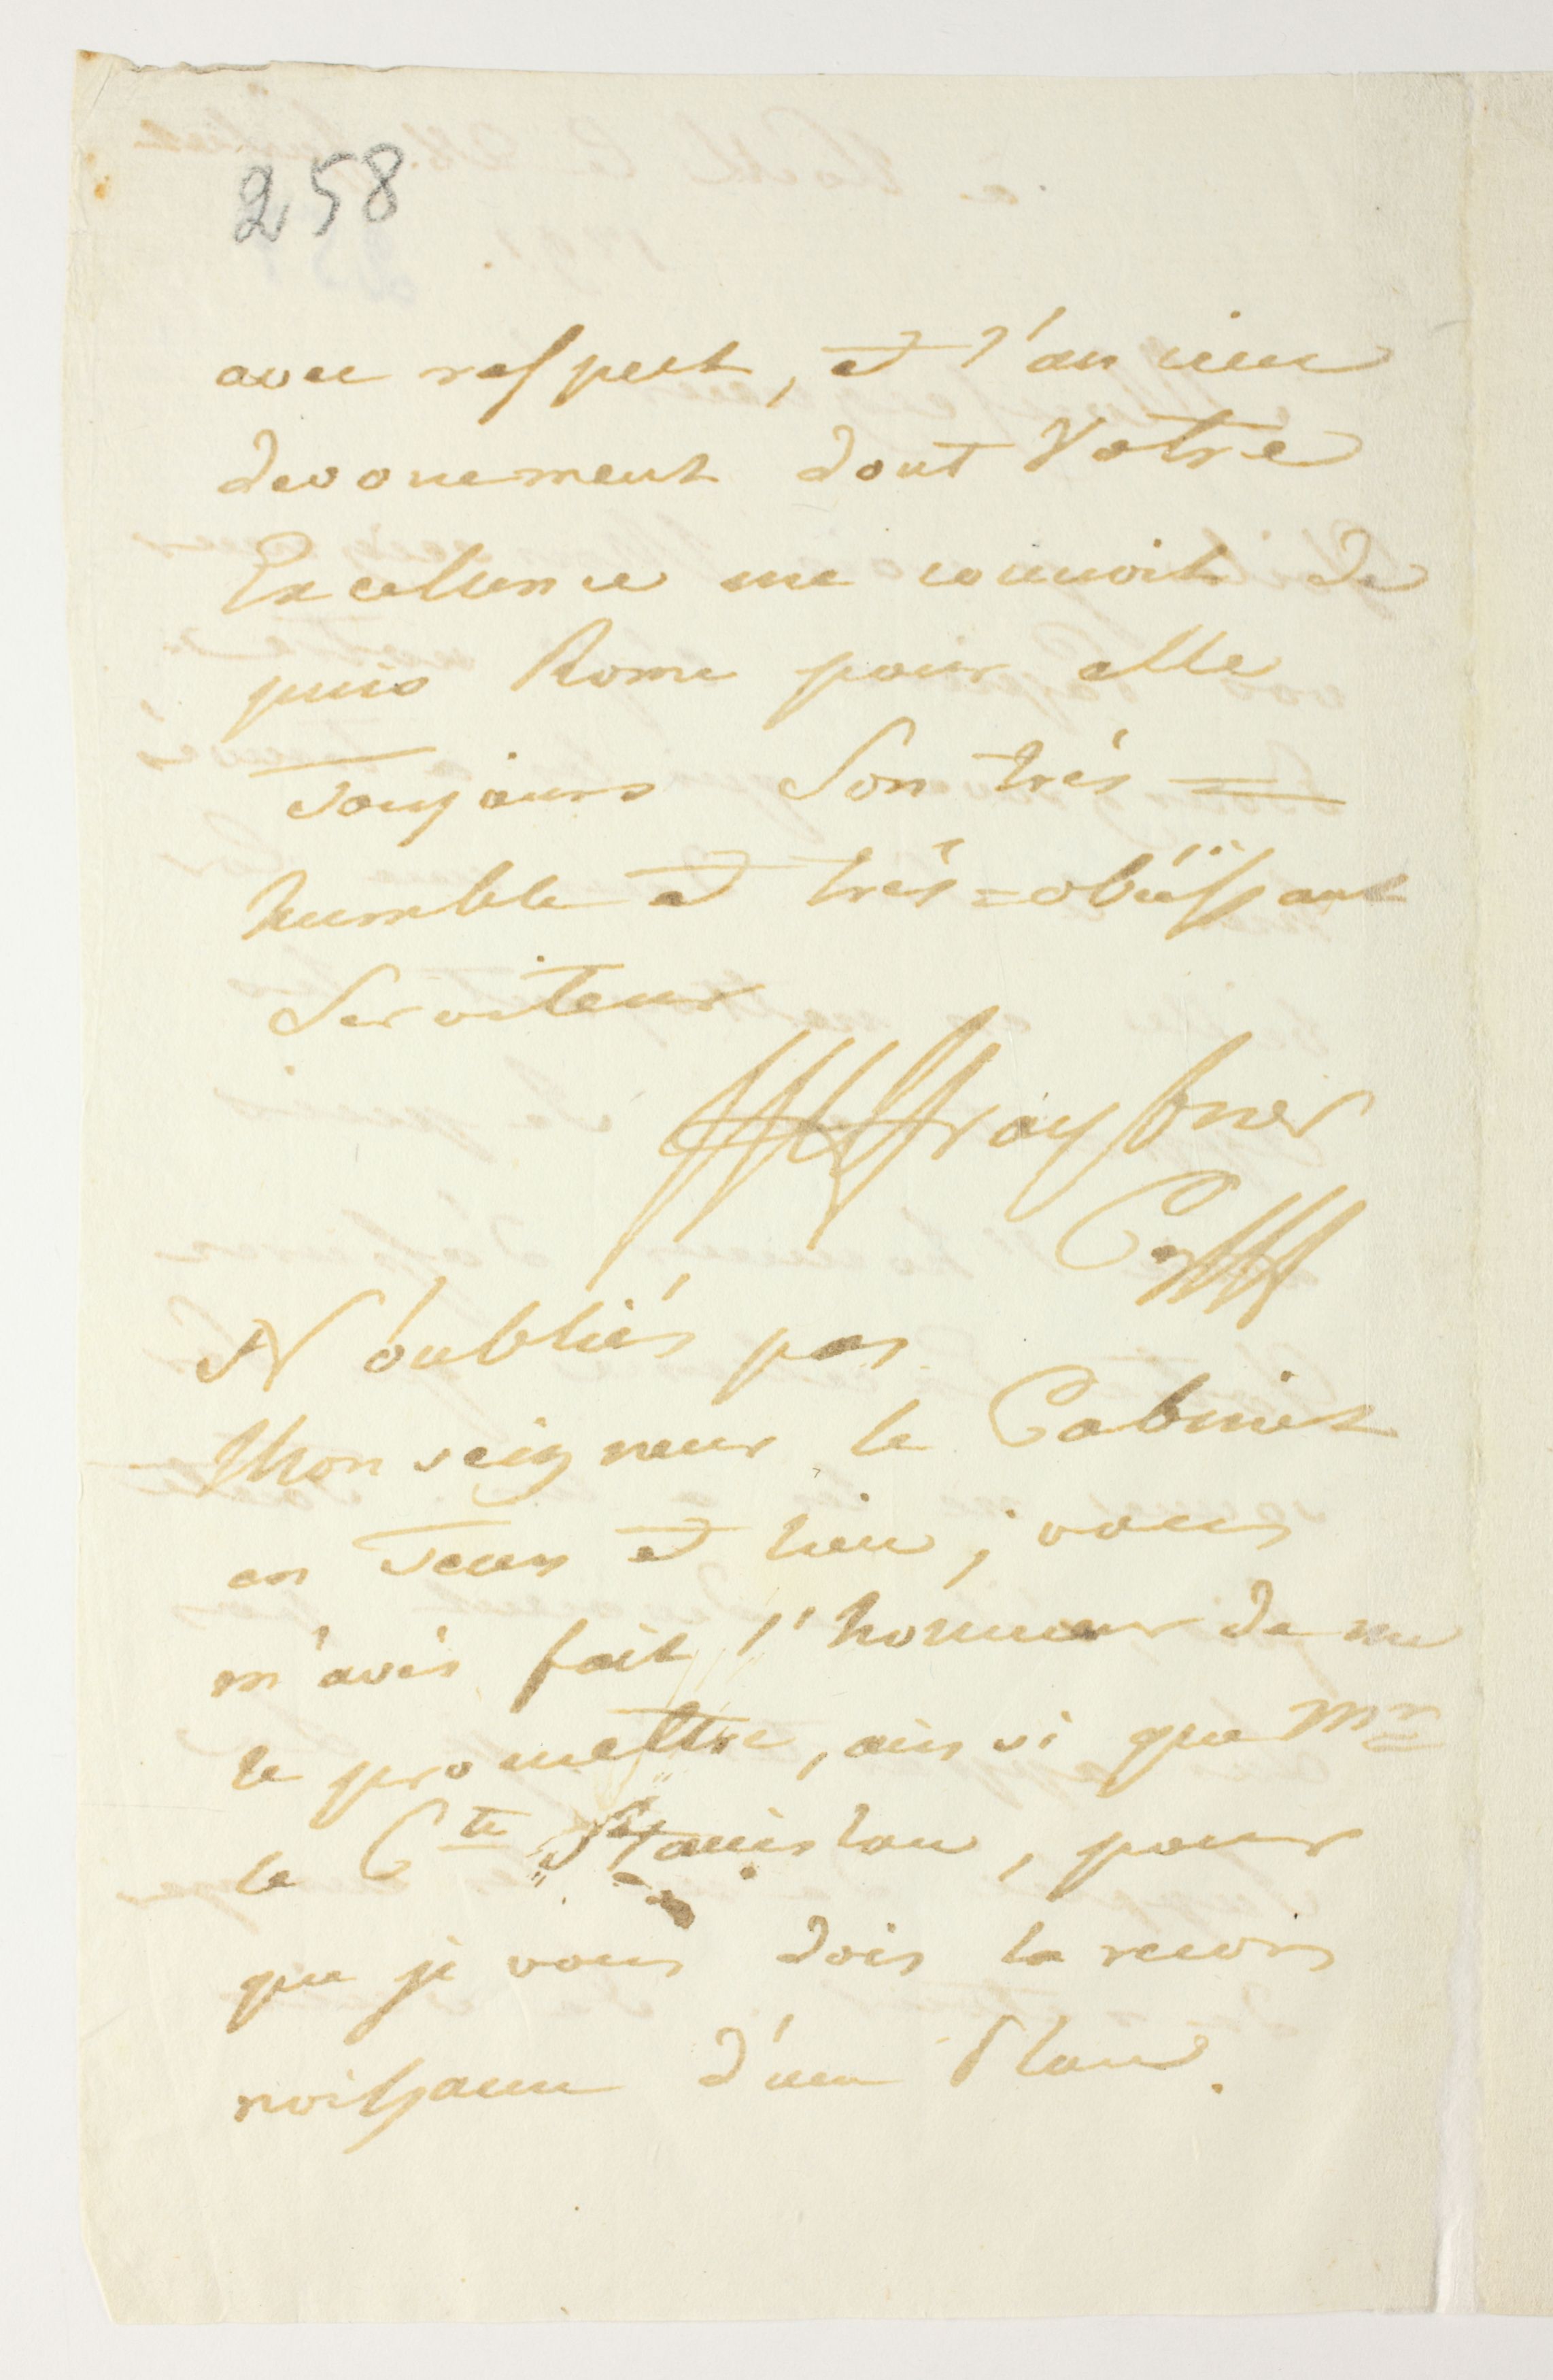 258
avec respect, et l'ancien
devouement dont Votre
Excellence me connoit de
puis Rome pour elle
toujours Son trés =
humble et trés = obéïssant
Serviteur
N'oubliés pas
Monseigneur le Cabinet
en tems et lieu; vous
m'avés fait l'honneur de me
le promettre, ainsi que Mr
le Cte Stanislau, pour
que je vous dois la recon
noissance d'un Plan.